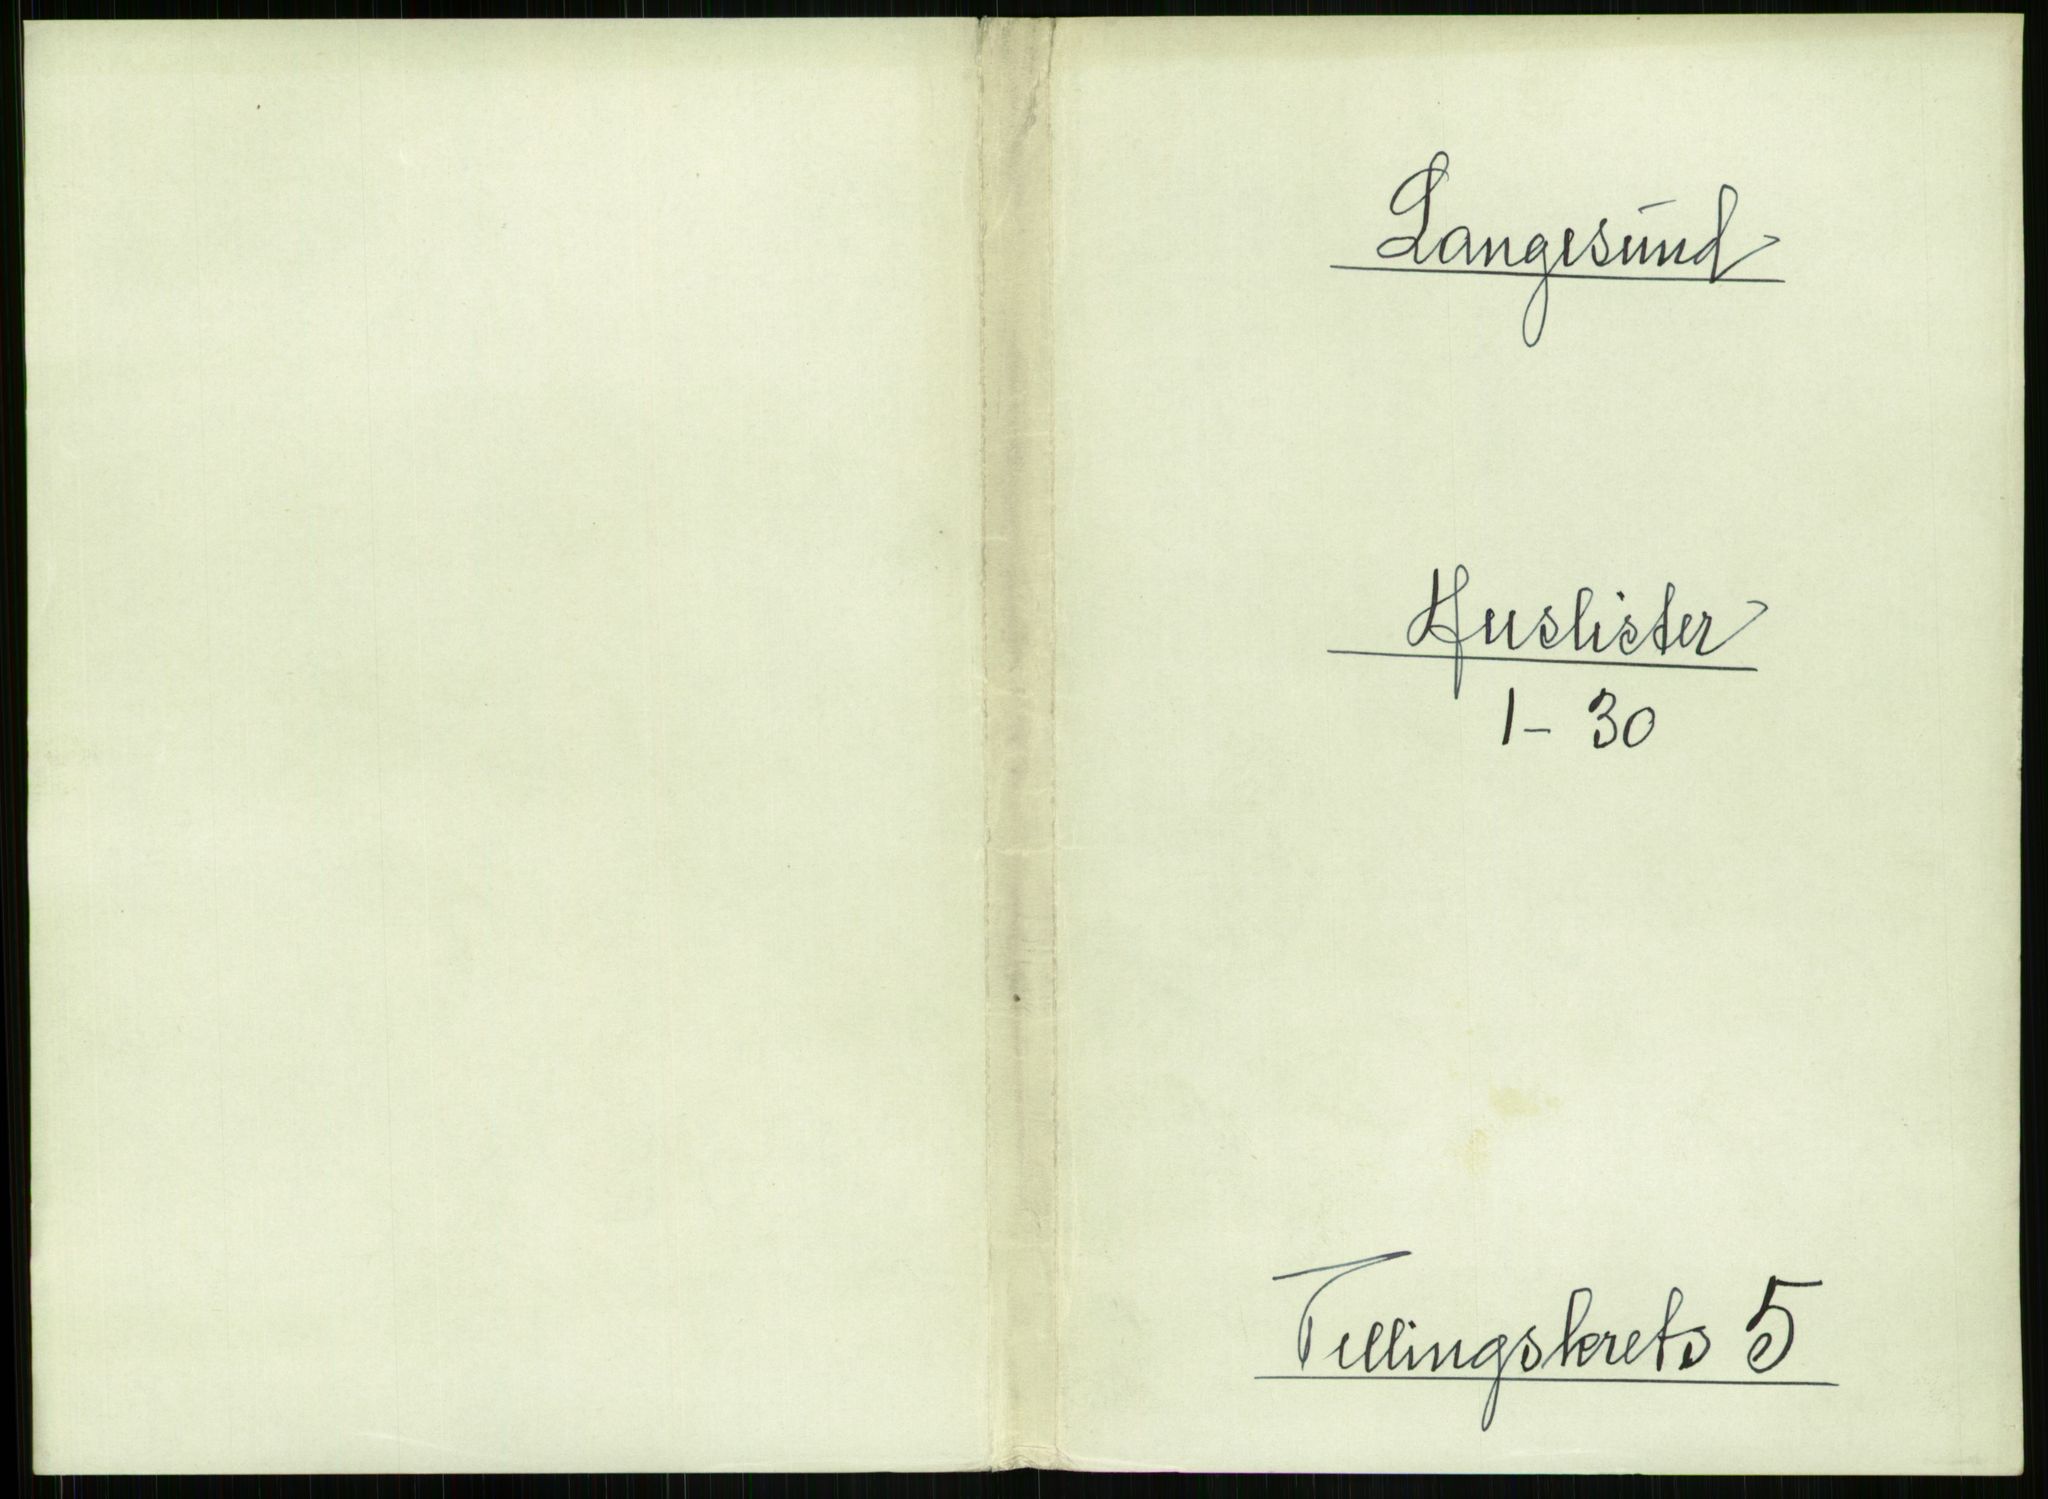 Langesund
Huslister
1-30
Tellingskrets 5